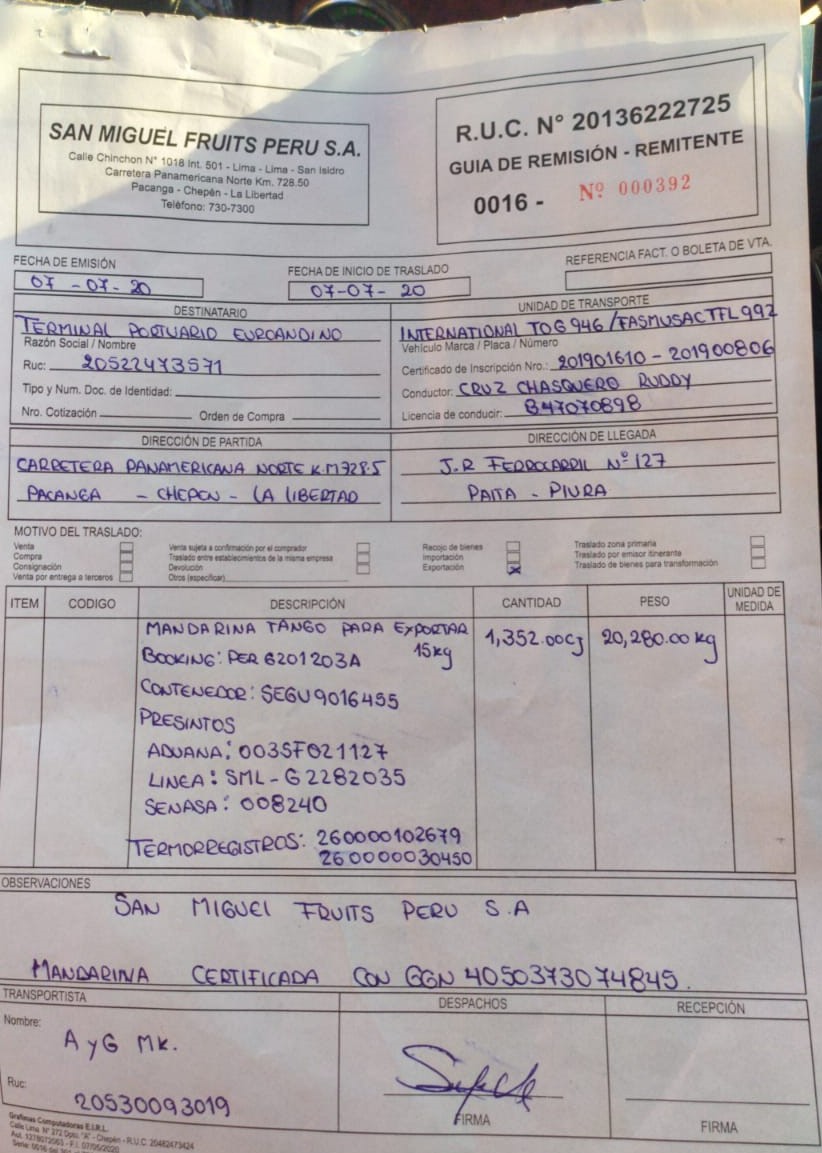 SAN MIGUEL FRUITS PERU S.A.
Calle Chinchon N° 1018 Int. 501 - Lima - Lima - San Isidro
Carretera Panamericana Norte Km. 728.50
Pacanga - Chepén - La Libertad
Teléfono: 730-7300
R.U.C. N° 20136222725
GUIA DE REMISIÓN - REMITENTE
0016 - Nº 000392
FECHA DE EMISIÓN
07-07-20
FECHA DE INICIO DE TRASLADO
07-07-20
REFERENCIA FACT. O BOLETA DE VTA.
DESTINATARIO
TERMINAL PORTUARIO EUROANDINO
Razón Social / Nombre
Ruc: 20522473571
Tipo y Num. Doc. de Identidad:
Nro. Cotización Orden de Compra
UNIDAD DE TRANSPORTE
INTERNATIONAL TOG946/FASMUSACTFL992
Vehículo Marca / Placa / Número
Certificado de Inscripción Nro.: 201901610 - 201900806
Conductor: CRUZ CHASQUERO RUDDY
Licencia de conducir: B47070898
DIRECCIÓN DE PARTIDA
CARRETERA PANAMERICANA NORTE K.M728.5
PACANGA - CHEPEN - LA LIBERTAD
DIRECCIÓN DE LLEGADA
J.R FERROCARRIL Nº 127
PAITA - PIURA
MOTIVO DEL TRASLADO:
Venta
Compra
Consignación
Venta por entrega a terceros
Venta sujeta a confirmación por el comprador
Traslado entre establecimientos de la misma empresa
Devolución
Otros (especificar)
Recojo de bienes
Importación
Exportación X
Traslado zona primaria
Traslado por emisor itinerante
Traslado de bienes para transformación
ITEM CODIGO DESCRIPCIÓN CANTIDAD PESO UNIDAD DE MEDIDA
MANDARINA TANGO PARA EXPORTAR 1,352.00CJ 20,280.00 kg
BOOKING: PER6201203A 15kg
CONTENEDOR: SEGU9016455
PRESINTOS
ADUANA: 003SF021127
LINEA: SML-G2282035
SENASA: 008240
TERMORREGISTROS: 260000102679
260000030450
OBSERVACIONES
SAN MIGUEL FRUITS PERU S.A
MANDARINA CERTIFICADA CON GGN 4050373074845.
TRANSPORTISTA
Nombre: A y G MK.
Ruc: 20530093019
DESPACHOS
FIRMA
RECEPCIÓN
FIRMA
Graficas Computadoras E.I.R.L.
Calle Lima N° 272 Dpto. "A" - Chepén - R.U.C. 20482473424
Aut. 1278072063 - F.I. 07/05/2020
Serie: 0016 del